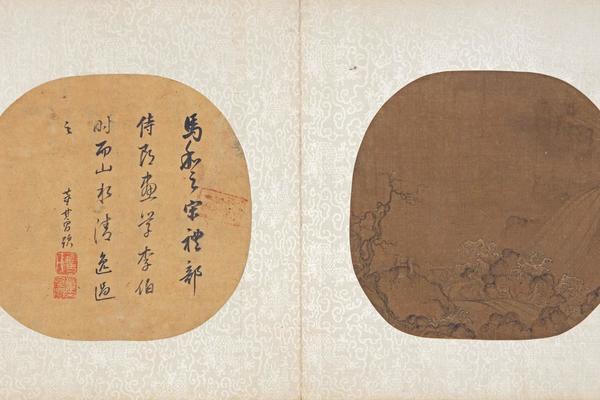 馬和之宋禮部
侍郎畫學李伯
時而山水清逸過
之
董其昌題